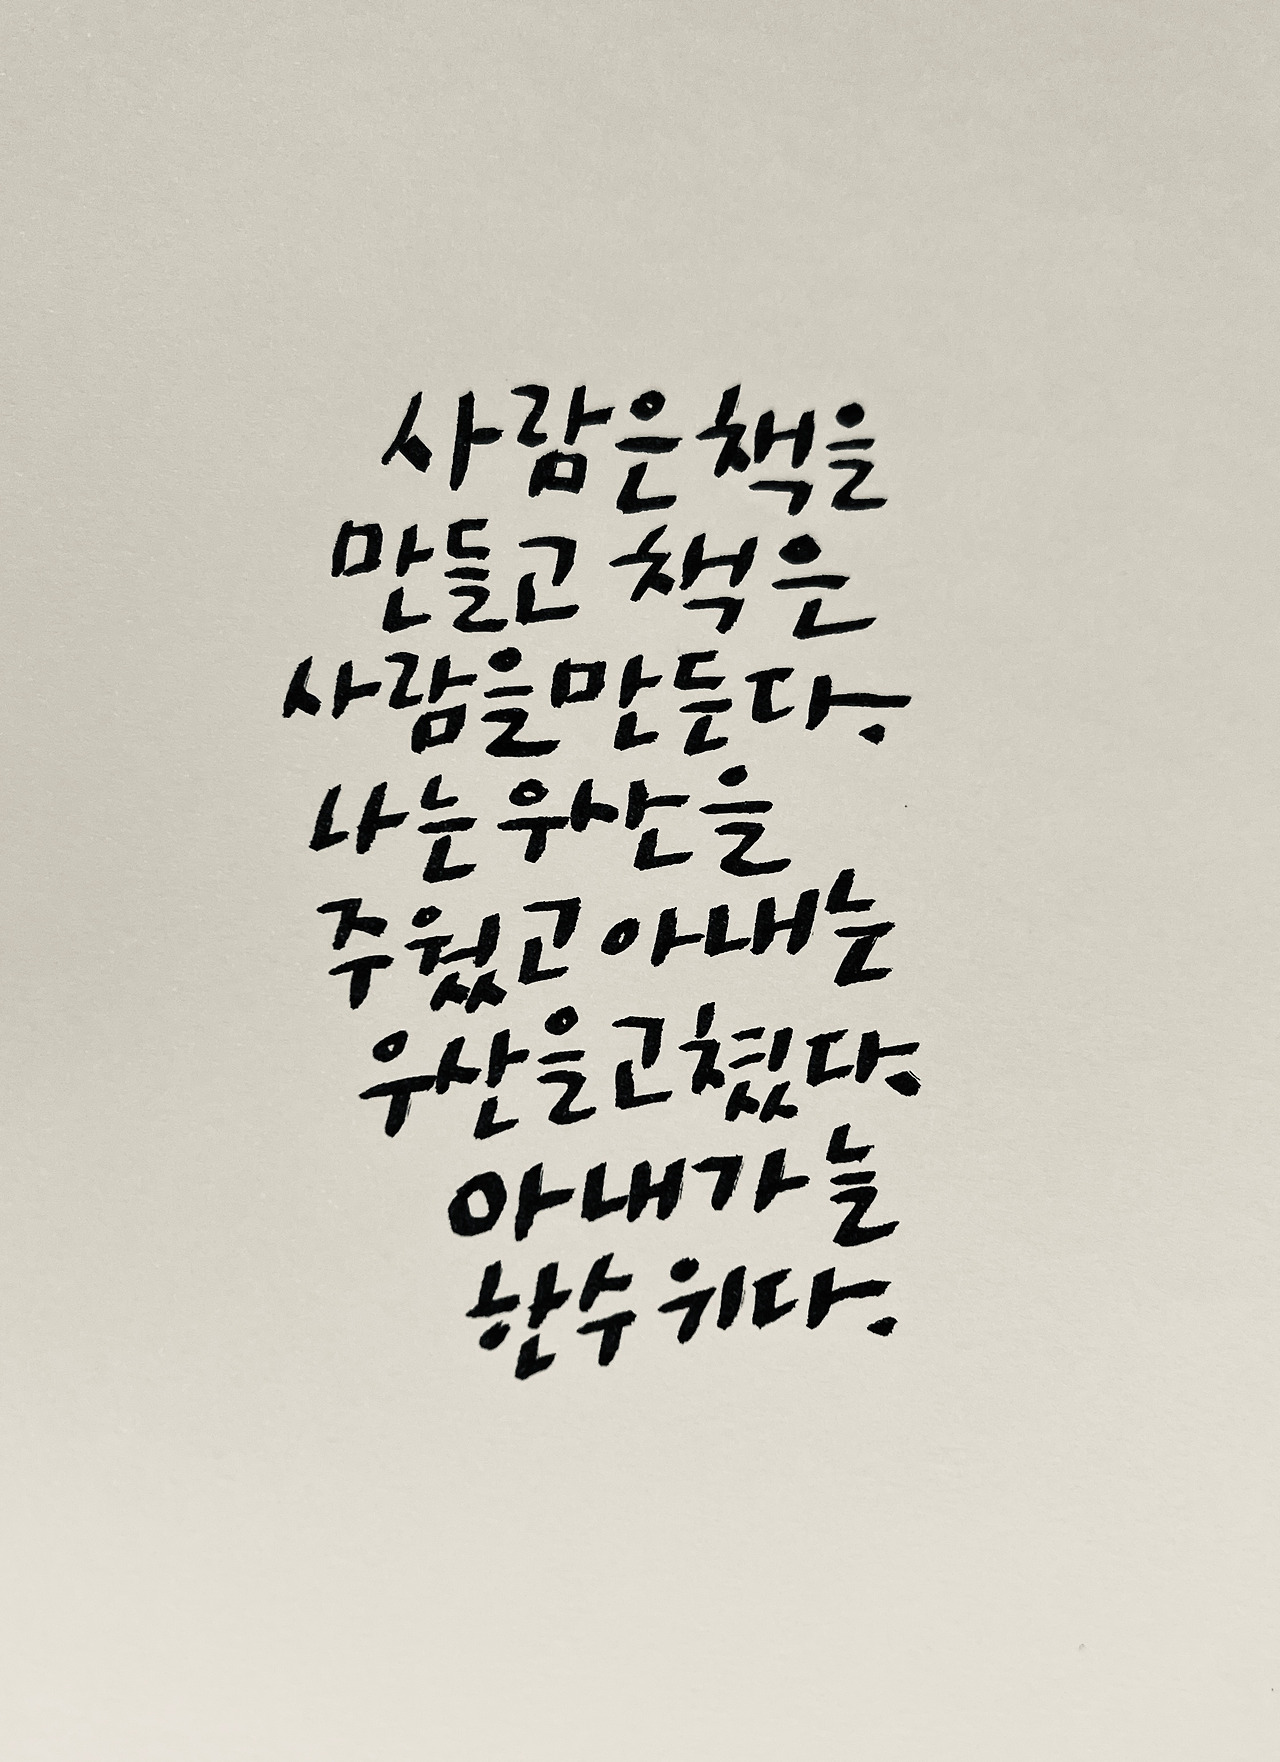 사람은 책을
만들고 책은
사람을 만든다.
나는 우산을
주웠고 아내는
우산을 고쳤다.
아내가 늘
한수 위다.